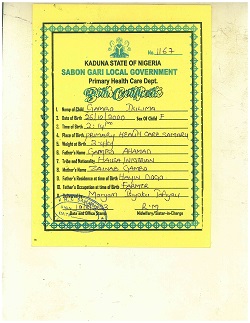 No. 1167
KADUNA STATE OF NIGERIA
SABON GARI LOCAL GOVERNMENT
Primary Health Care Dept.
Birth Certificate
1. Name of Child GAMBO
2. Date of Birth 26/10/2000 Sex Of Child F
3. Time of Birth
4. Place of Birth PRIMARY HEALTH CARE SAMARU
5. Weight at Birth
6. Father's Name GAMBO AHAMAD
7. Tribe and Nationality HAUSA
8. Mother's Name ZAINAB GAMBO
9. Father's Residence at time of Birth HAYIN DOGO
Father's Occupation at time of Birth FARMER
Delivered by Maryam
R/M
Date and Office Stamp Midwifery/Sister-in-Charge